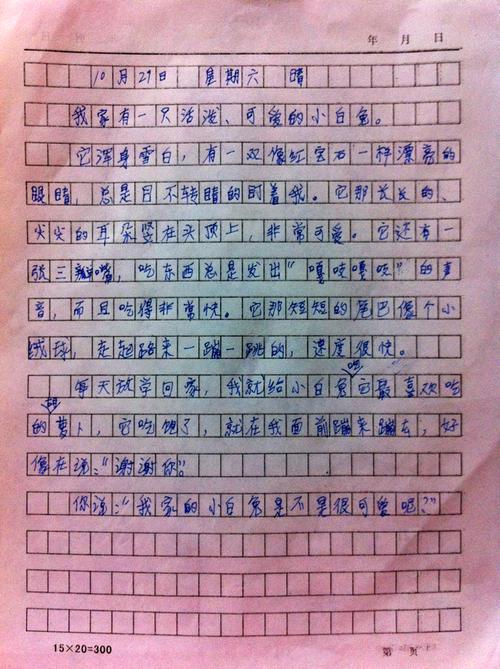 年 月 日
10月29日 星期六 晴
我家有一只活泼、可爱的小白兔。
它浑身雪白，有一双像红宝石一样漂亮的
眼睛，总是目不转睛的盯着我。它那长长的、
尖尖的耳朵竖在头顶上，非常可爱。它还有一
张三瓣嘴，吃东西总是发出“嘎吱嘎吱”的声
音，而且吃得非常快。它那短短的尾巴像个小
绒球，走起路来一蹦一跳的，速度很快。
每天放学回家，我就给小白兔吃它最喜欢吃
的胡萝卜，它吃饱了，就在我面前蹦来蹦去，好
像在说：“谢谢你”。
你说：“我家的小白兔是不是很可爱呢？”
15×20=300
第 页